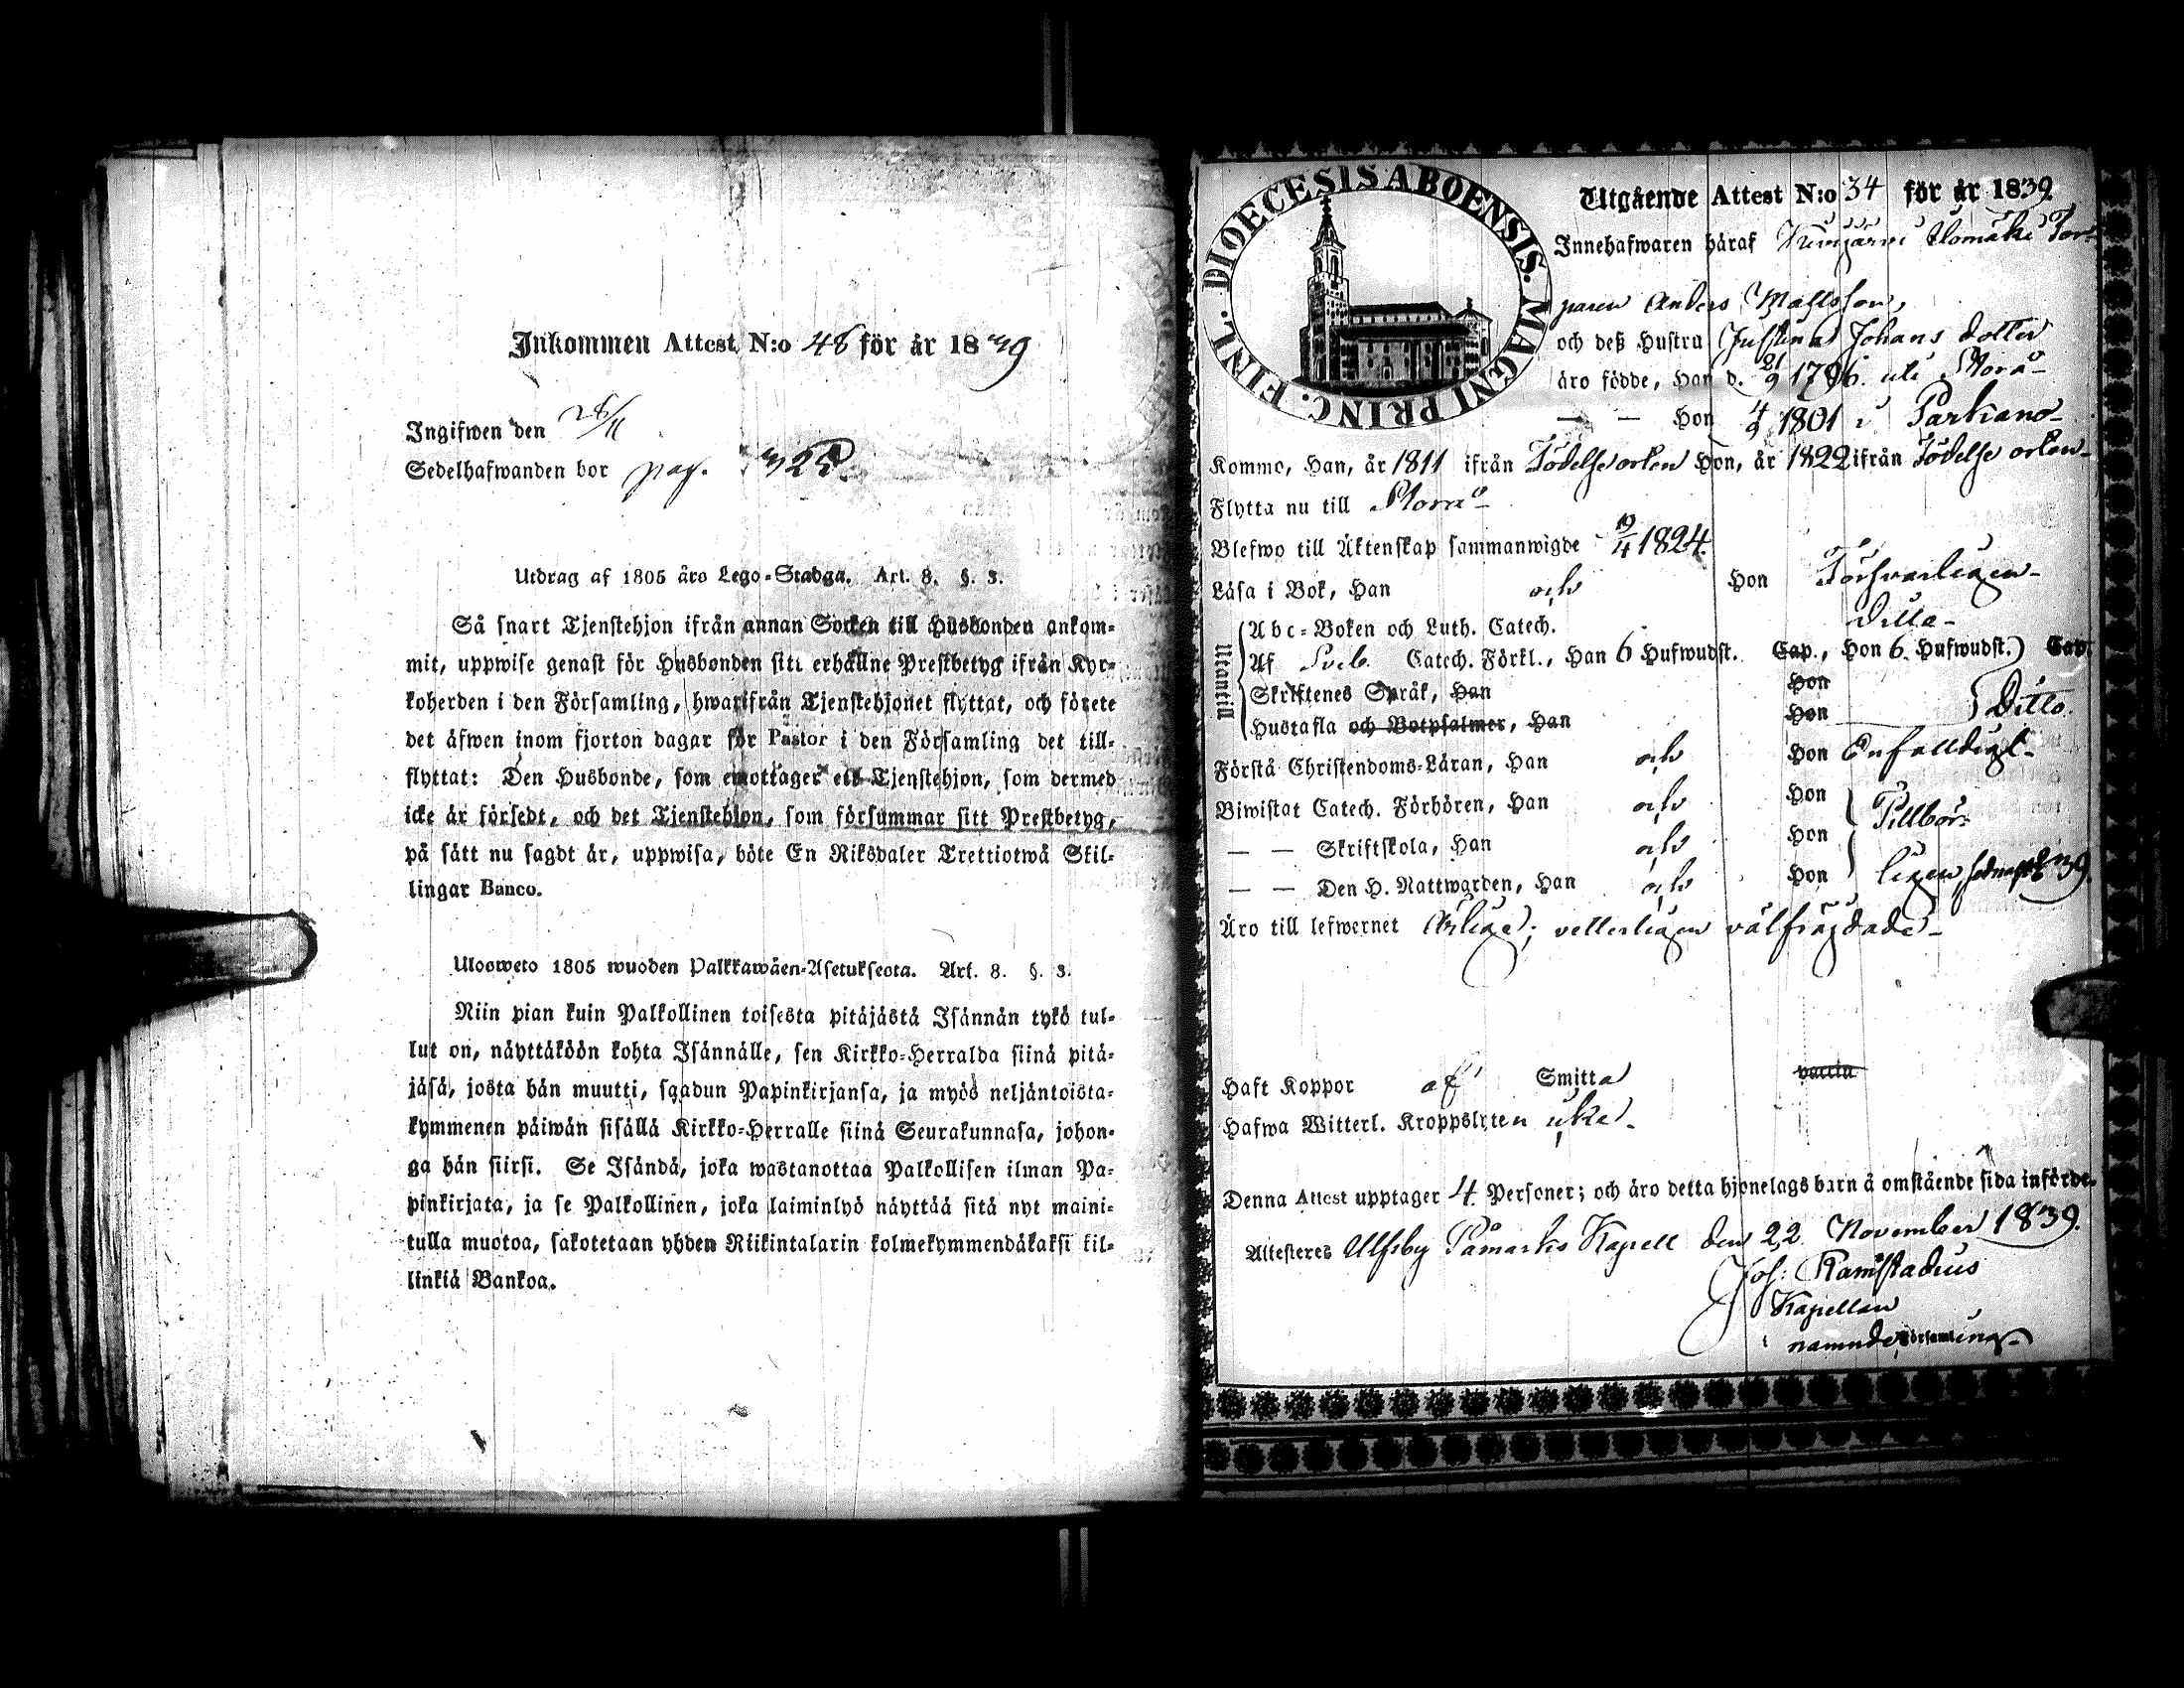 Inkommen Attest N:o 48 för år 1839
Ingifwen den 28/11
Sedelhafwanden bor pag. 325.
Utdrag af 1805 års Lego-Stadga. Art. 8. §. 3.
Så snart Tjenstehjon ifrån annan Socken till Husbonden ankom-
mit, uppwise genast för Husbonden sitt erhållne Prestbetyg ifrån Kyr-
koherden i den Församling, hwarifrån Tjenstehjonet flyttat, och förete
det äfwen inom fjorton dagar för Pastor i den Församling det till-
flyttat: Den Husbonde, som emottager ett Tjenstehjon, som dermed
icke är försedt, och det Tjenstehjon, som försummar sitt Prestbetyg,
på sätt nu sagdt är, uppwisa, böte En Riksdaler Trettiotwå Skil-
lingar Banco.
Ulosweto 1805 wuoden Palkkawäen-Asetuksesta. Art. 8. §. 3.
Niin pian kuin Palkollinen toisesta pitäjästä Isännän tykö tul-
lut on, näyttäköön kohta Isännälle, sen Kirkko-Herralda siinä pitä-
jäsä, josta hän muutti, saadun Papinkirjansa, ja myös neljäntoista-
kymmenen päiwän sisällä Kirkko-Herralle siinä Seurakunnasa, johon-
ga hän siirsi. Se Isändä, joka wastanottaa Palkollisen ilman Pa-
pinkirjata, ja se Palkollinen, joka laiminlyö näyttää sitä nyt maini-
tulla muotoa, sakotetaan yhden Riikintalarin kolmekymmendäkaksi kil-
linkiä Bankoa.
DIOECESIS ABOENSIS. MAGNI PRINC. FINL.
Utgående Attest N:o 34 för år 1839.
Innehafwaren häraf Tor-
paren Anders Mattsson,
och deß Hustru Justina Johans dotter
äro födde, Han d. 21/9 1796. uti Norrå
— — Hon 4/9 1801 i Parkano
Kommo, Han, år 1811 ifrån Födelse orten Hon, år 1822 ifrån Födelse orten
Flytta nu till Norrå
Blefwo till Äktenskap sammanwigde 19/4 1824.
Läsa i Bok, Han och Hon Försvarligen
Utantill
Abc-Boken och Luth. Catech. Ditto
Af Sveb. Catech. Förkl., Han 6 Hufwudst. Cap., Hon 6. Hufwudst.) Cap.
Skriftenes Språk, Han Hon
Hustafla och Botpsalmer, Han Hon Ditto.
Förstå Christendoms-Läran, Han och Hon Enfaldigt
Biwistat Catech. Förhören, Han och Hon Tillbör-
— — Skriftskola, Han och Hon
— — Den H. Nattwarden, Han och Hon ligen, 39.
Äro till lefwernet Ärlige; vetterligen välfräjdade
Haft Koppor af Smitta vaccin
Hafwa Witterl. Kroppslyten icke
Denna Attest upptager 4 Personer; och äro detta hjonelags barn å omstående sida införde.
Attesteres Ulfsby Påmarks Kapell den 22 November 1839.
Joh: Ramstadius
Kapellan
i namnde Församling